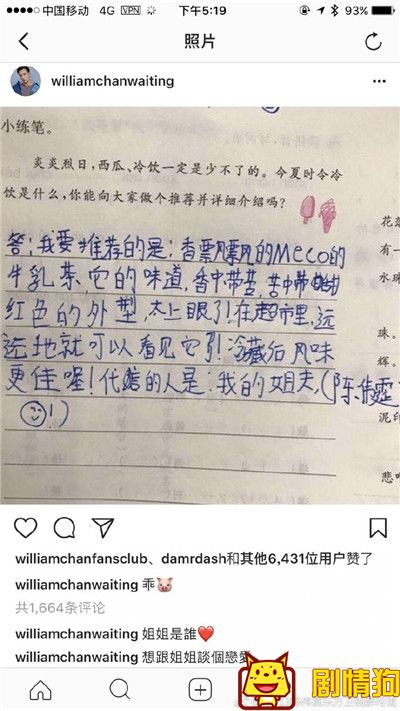 中国移动 4G VPN 下午5:19 93%
照片
williamchanwaiting
小练笔。
炎炎烈日,西瓜、冷饮一定是少不了的。今夏时令冷
饮是什么,你能向大家做个推荐并详细介绍吗?
答:我要推荐的是:香飘飘的Meco的
牛乳茶,它的味道,香中带苦,苦中带甜
红色的外型,太上眼了!在超市里,远
远地就可以看见它了!冷藏后风味
更佳喔!代言的人是:我的姐夫,(陈伟霆
!)
花
有一
水珠
珠。
辉。
泥印
williamchanfansclub、damrdash和其他6,431位用户赞了
williamchanwaiting 乖🐷
共1,664条评论
williamchanwaiting 姐姐是誰❤️
williamchanwaiting 想跟姐姐談個戀愛
剧情狗